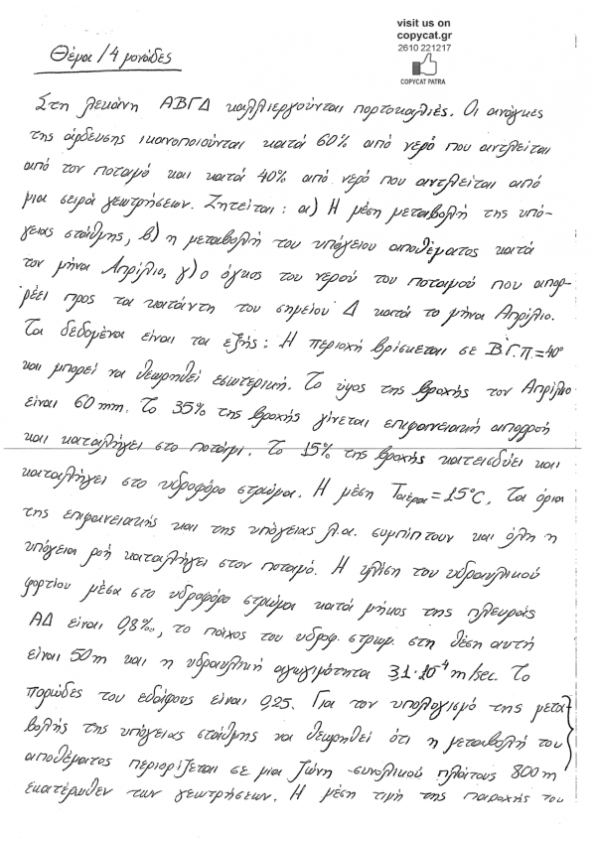 visit us on
copycat.gr
2610 221217
COPYCAT PATRA
Θέμα / 4 μονάδες
Στη λεκάνη ΑΒΓΔ καλλιεργούνται πορτοκαλιές. Οι ανάγκες
της άρδευσης ικανοποιούνται κατά 60% από νερό που αντλείται
από τον ποταμό και κατά 40% από νερό που αντλείται από
μια σειρά γεωτρήσεων. Ζητείται: α) Η μέση μεταβολή της υπό-
γειας στάθμης, β) η μεταβολή του υπόγειου αποθέματος κατά
τον μήνα Απρίλιο, γ) ο όγκος του νερού του ποταμού που απορ-
ρέει προς τα κατάντη του σημείου Δ κατά το μήνα Απρίλιο.
Τα δεδομένα είναι τα εξής: Η περιοχή βρίσκεται σε Β.Γ.Π=40°
και μπορεί να θεωρηθεί εσωτερική. Το ύψος της βροχής τον Απρίλιο
είναι 60 mm. Το 35% της βροχής γίνεται επιφανειακή απορροή
και καταλήγει στο ποτάμι. Το 15% της βροχής κατεισδύει και
καταλήγει στο υδροφόρο στρώμα. Η μέση Ταέρα=15°C. Τα όρια
της επιφανειακής και της υπόγειας λ.α. συμπίπτουν και όλη η
υπόγεια ροή καταλήγει στον ποταμό. Η κλίση του υδραυλικού
φορτίου μέσα στο υδροφόρο στρώμα κατά μήκος της πλευράς
ΑΔ είναι 0,8‰, το πάχος του υδροφ. στρωμ. στη θέση αυτή
είναι 50m και η υδραυλική αγωγιμότητα 3,1·10⁻⁴ m/sec. Το
πορώδες του εδάφους είναι 0,25. Για τον υπολογισμό της μετα-
βολής της υπόγειας στάθμης να θεωρηθεί ότι η μεταβολή του
αποθέματος περιορίζεται σε μια ζώνη συνολικού πλάτους 800m
εκατέρωθεν των γεωτρήσεων. Η μέση τιμή της παροχής του